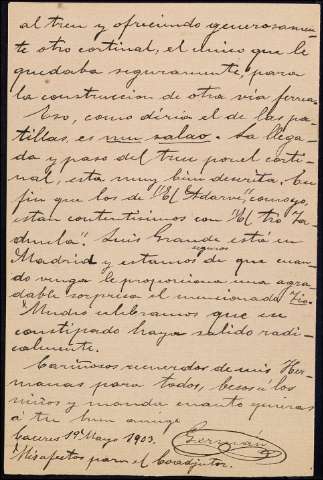 al tren y ofreciendo generosamen-
te otro cortinal, el unico que le
quedaba seguramente, para
la construccion de otra vía ferrea.
Eso, como diría el de las pa-
tillas, es muy salao. La llega-
da y paso del tren por el corti-
nal, está muy bien descrita. En
fin que los de "El Adarve", conmigo,
están contentisimos con "El Tio Ta-
duela". Luis Grande está en
Madrid y estamos seguros de que cuan-
do venga le proporciona una agra-
dable sorpresa el mencionado Tio.
Mucho celebramos que tu
constipado haya salido radi-
calmente.
Cariñosos recuerdos de mis Her-
manas para todos, besos á los
niños y manda cuanto quieras
á tu buen amigo
Germán
Cáceres 19 Mayo 1903.
Mis afectos para el Coadjutor.